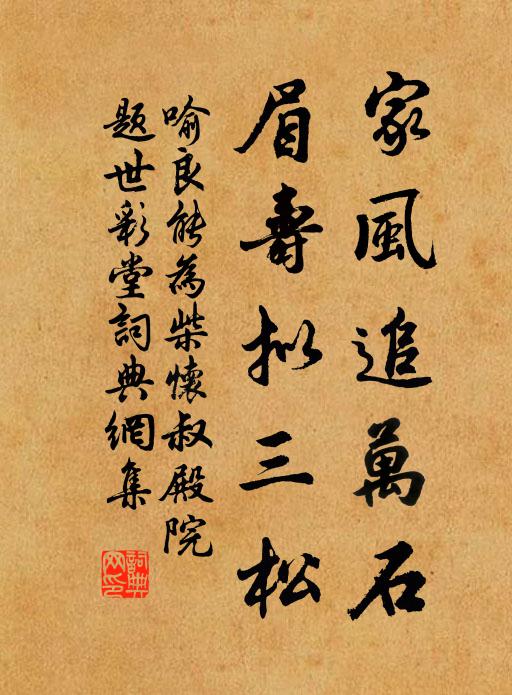 家風追萬石
眉壽擬三松
喻良能為柴懷叔殿院
題世彩堂詞典網集
詞典網印